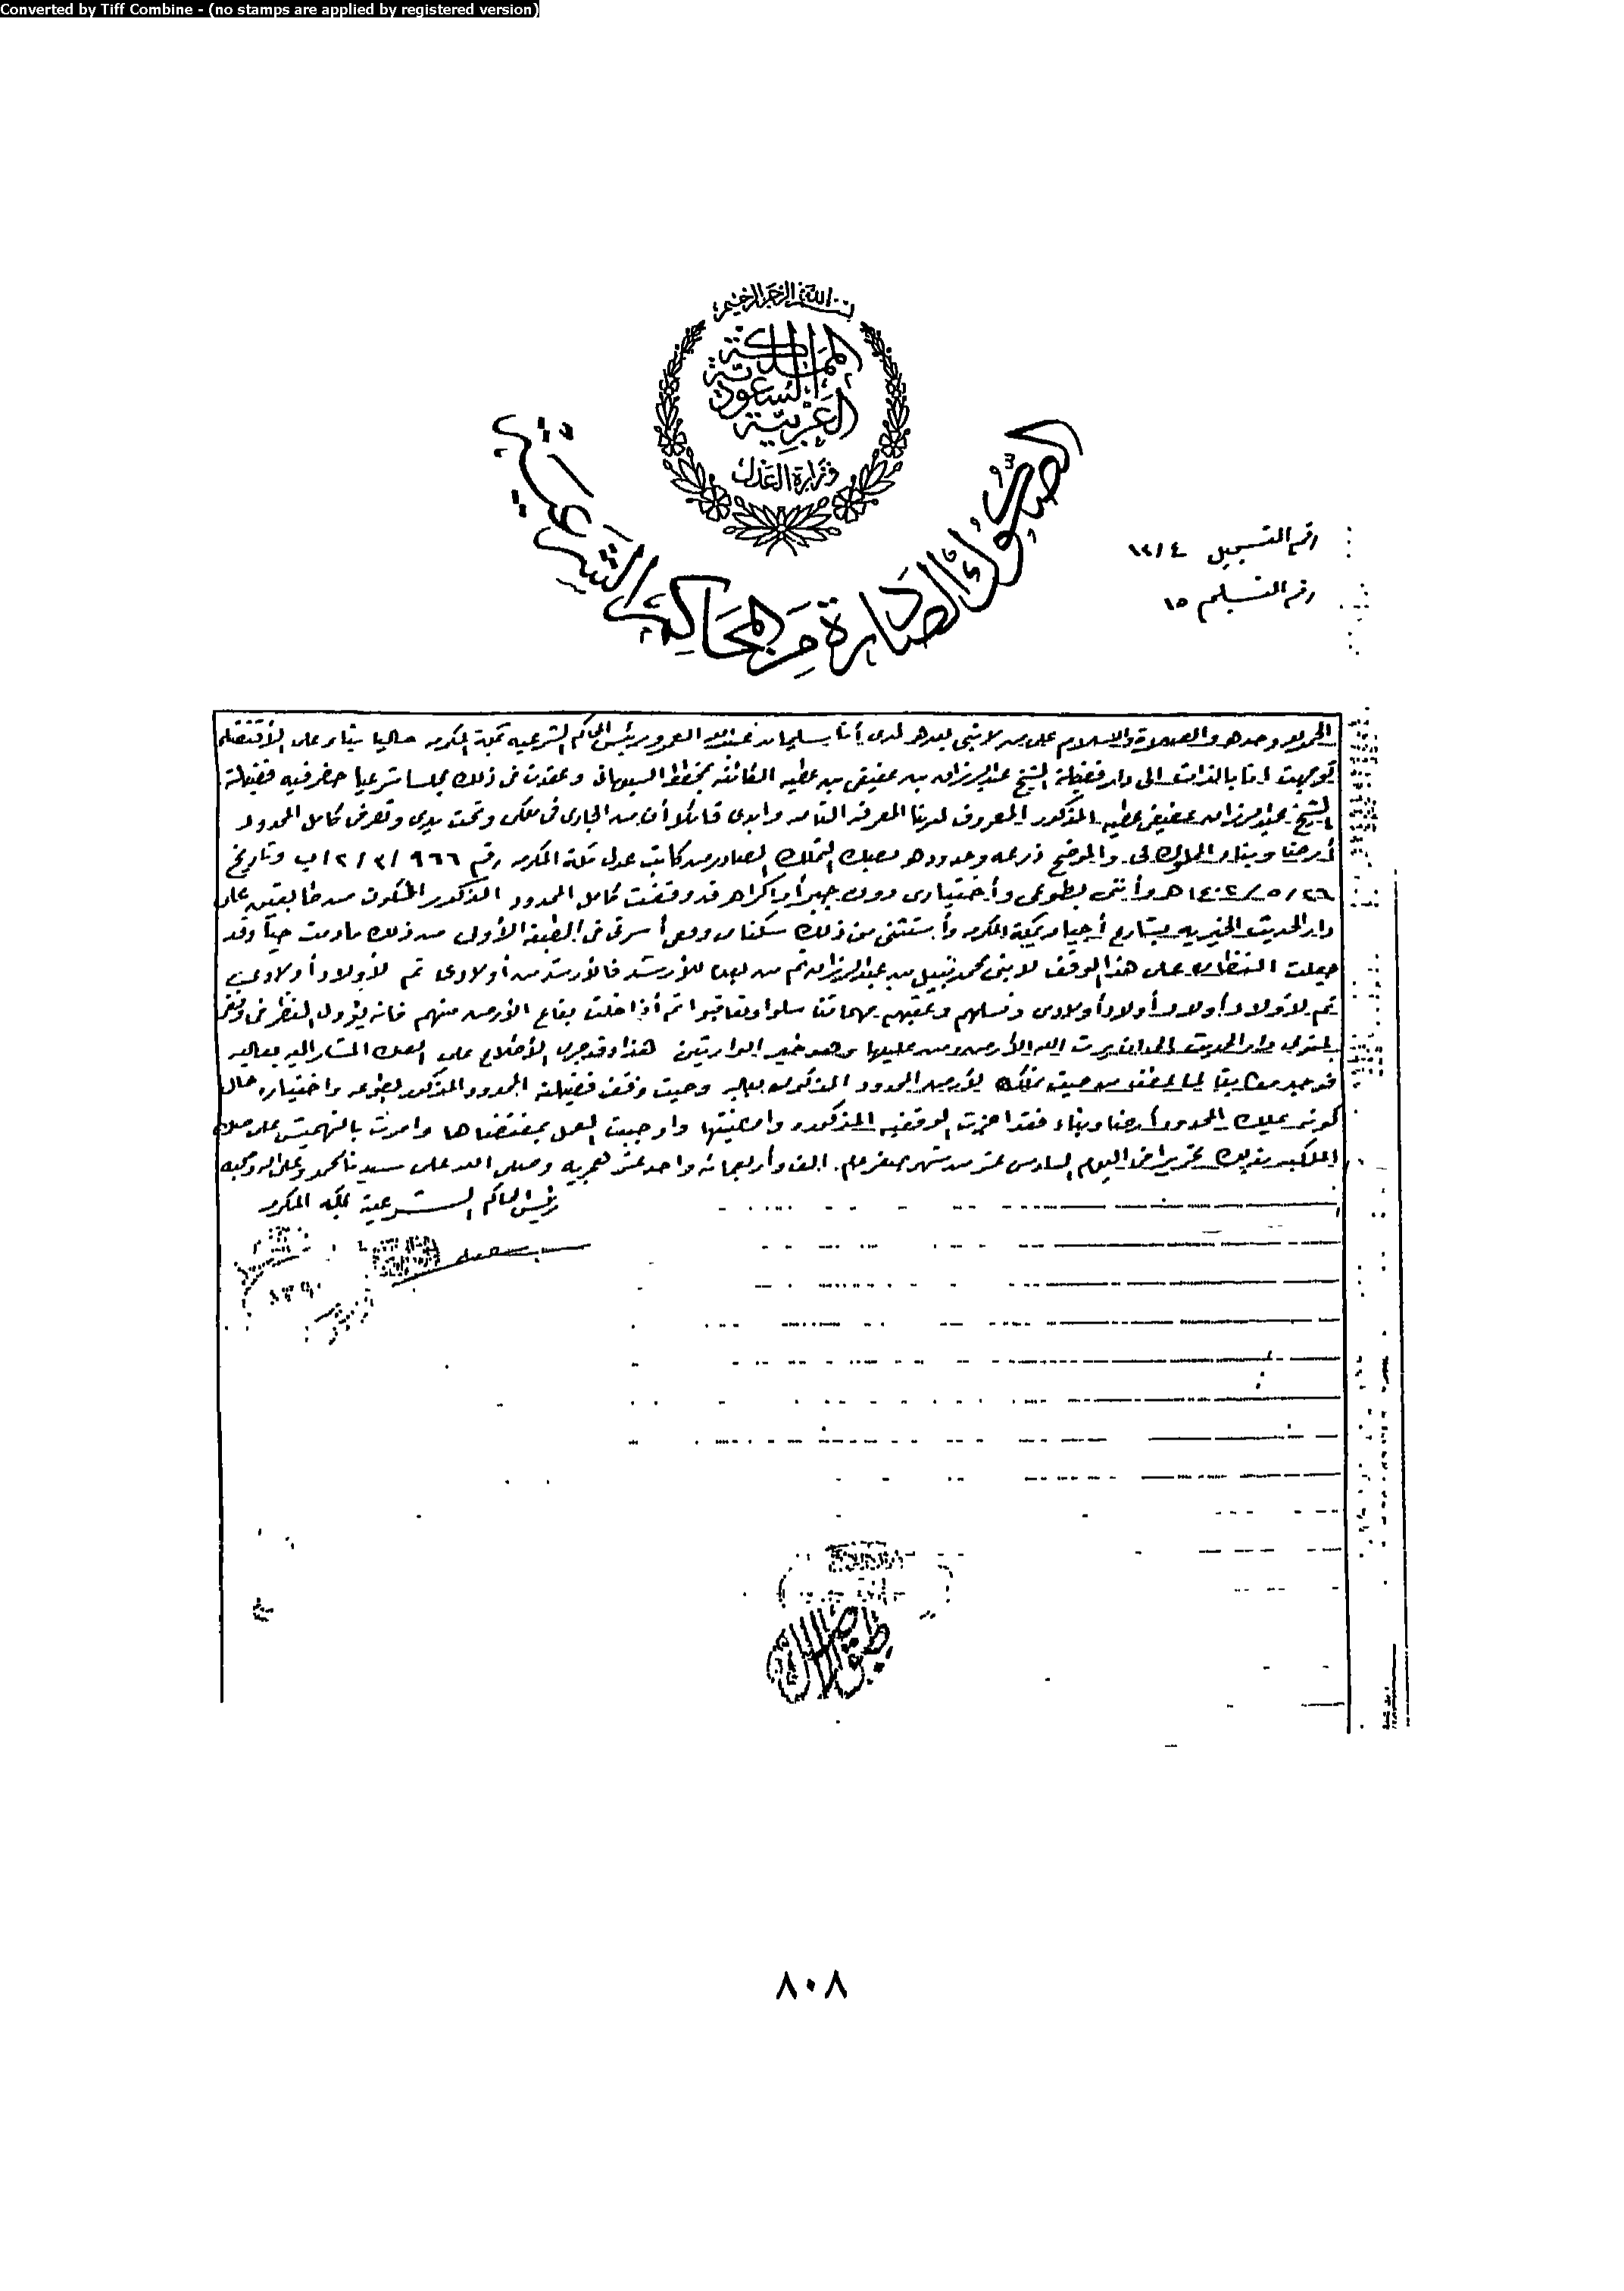 Converted by Tiff Combine - (no stamps are applied by registered version)
بسم الله الرحمن الرحيم
المملكة
العربية السعودية
وزارة العدل
الصكوك الصادرة من المحاكم الشرعية
رقم التسجيل ١٢/٤
رقم التسليم ١٥
الحمد لله وحده والصلاة والسلام على من لا نبي بعده لدي أنا سليمان رئيس المحاكم الشرعية بمكة المكرمة حاليا بناء على
توجهت أنا بالذات الى دار فضيلة الشيخ عبد الرزاق بن عفيفي بن عطيه الكائنة بمخطط السبهاني وعقدت في ذلك مجلسا شرعيا حضر فيه فضيلة
الشيخ عبد الرزاق عفيفي عطيه المذكور المعروف لدينا المعرفة التامة وابدى قائلا أن من الجاري في ملكي وتحت يدي وتصرفي كامل المحدود
أرضا وبناء المملوك لي والموضح ذرعه وحدوده بصك التملك الصادر من كاتب عدل مكة المكرمة رقم ٩٦٦ /٣ /١٢ب وتاريخ
٢٦ /٥ /١٤٠٢هـ وأنني بطوعي وأختياري دون جبر أو اكراه قد وقفت كامل المحدود المذكور المكون من طابقين على
دار الحديث الخيريه بشارع أجياد بمكة المكرمة وأستثني من ذلك سكناي ومعي أسرتي في الطبقة الأولى من ذلك ما دمت حيا وقد
جعلت النظارة على هذا الوقف لابني محمد نبيل بن عبد الرزاق ثم من بعده للأرشد فالأرشد من أولادي ثم لأولاد أولادي
ثم لأولاد أولاد أولاد أولادي ونسلهم وعقبهم مهما تناسلوا وتعاقبوا ثم أذا خلت بقاع الأرض منهم فانه يؤول النظر في وقفي
لمتولي دار الحديث الى ان يرث الله الأرض ومن عليها وهو خير الوارثين هذا وقد جرى الأطلاع على الصك المشار اليه بعاليه
فوجد مطابقا لما من حيث تملك المحدود المذكور بعاليه وحيث وقف فضيلته المحدود المذكور بطوعه واختياره حال
كونه يملك المحدود أرضا وبناء فقد اجزت الوقفية المذكورة وامضيتها واوجبت العمل بمقتضاها وامرت بالتهميش على صك
الملكية بذلك تحريرا في اليوم السادس عشر من شهر صفر عام الف وأربعمائة واحد عشر هجريه وصلى الله على سيدنا محمد وعلى اله وصحبه
رئيس المحاكم الشرعية بمكة المكرمة
طبق الأصل
٨٠٨